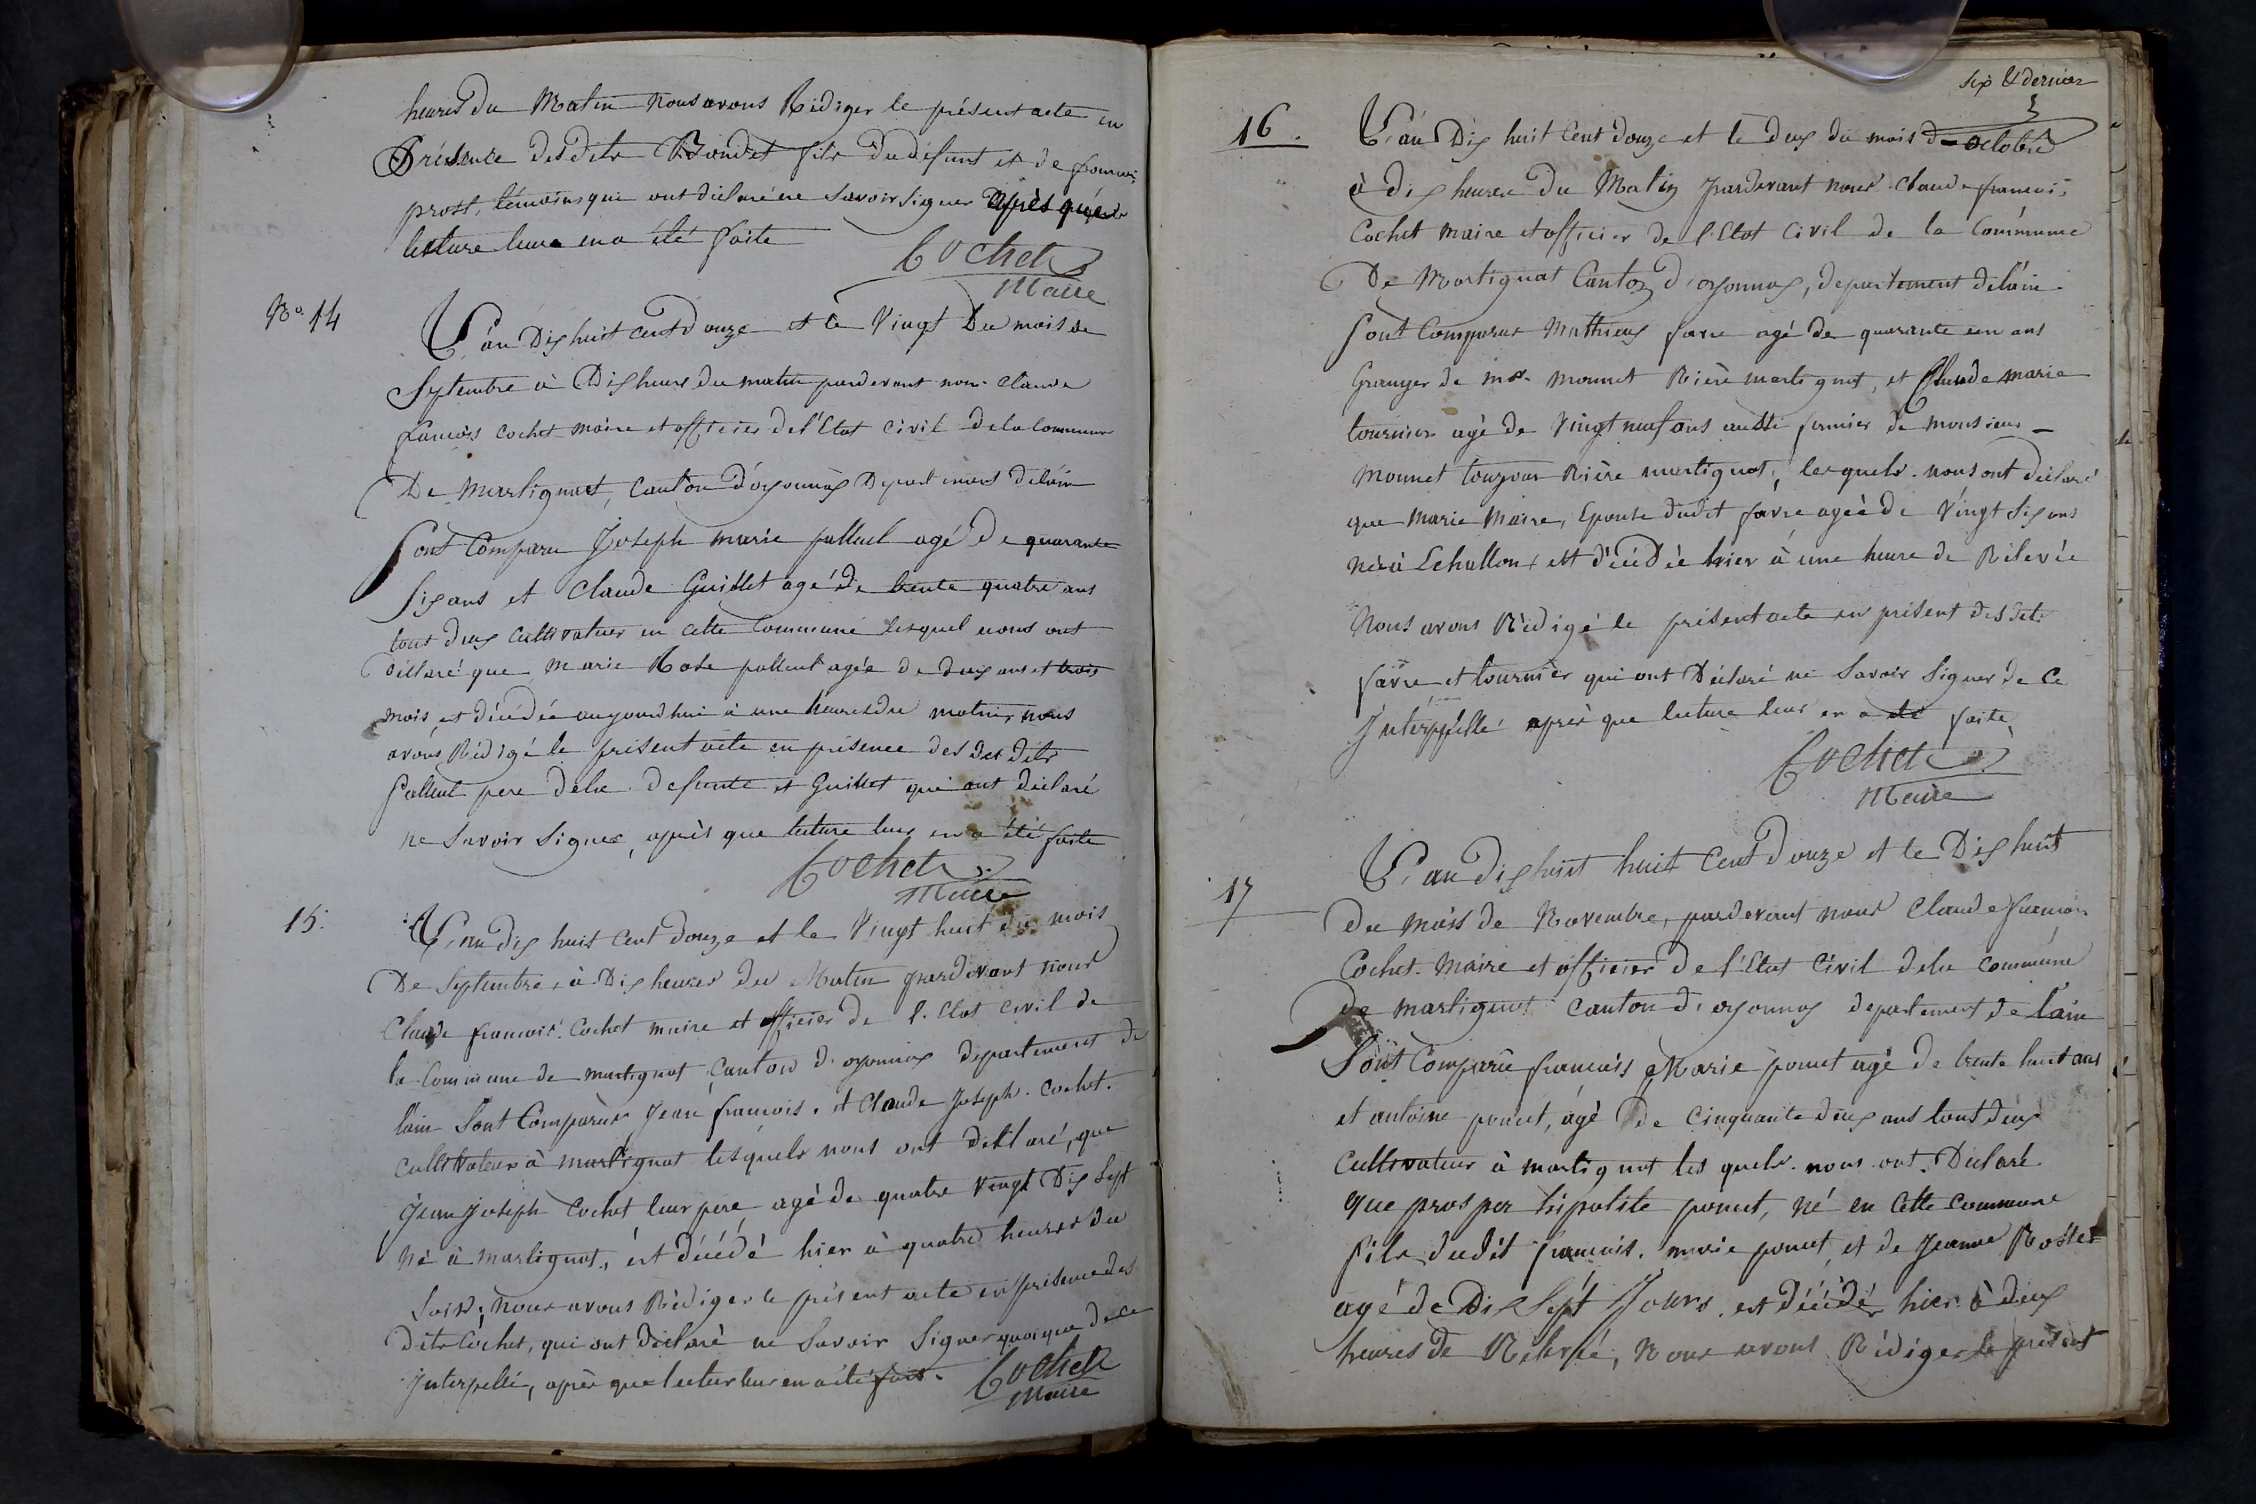 heures du Matin nous avons Rédiger le présent acte en
Présence des dits Bondet fils du défunt et de francois
prost, témoins qui ont déclaré ne savoir signer après que
lecture leur en a été faite
Cochet
Maire
No. 14
L'an Dix huit cent douze et le Vingt Du mois de
Septembre à Dix heures du matin pardevant nous Claude
francois cochet maire et officier de l'Etat civil de la Commune
De Martignat, canton d'oyonnax Departement de l'ain
Sont Comparu Joseph marie palleul agé De quarante
six ans et Claude Guillet agé De trente quatre ans
tout deux cultivateur en cette Commune lesquel nous ont
déclaré que Marie Rose palleul agée de deux ans et trois
mois, est décédée aujourdhui à une heures du matin, nous
avons Rédigé le présent acte en présence des des dits
Palleul pere de la defunte et Guillet qui ont déclaré
ne Savoir Signer, après que lecture leur en a été faite
Cochet
Maire
15.
L'an dix huit cent douze et le Vingt huit du mois
De Septembre, à Dix heures du Matin pardevant nous
Claude francois Cochet maire et officier de l'Etat civil de
la Commune de martignat canton d'oyonnax departement de
l'ain Sont Comparus Jean francois et Claude Joseph cochet
cultivateur à martignat lesquels nous ont déclaré, que
Jean Joseph Cochet leur père, agé de quatre vingt Dix Sept
Né à martignat, est décédé hier à quatre heures du
Soir; nous avons Rédiger le présent acte en présence des
Dits Cochet, qui ont déclaré ne Savoir Signer quoique de ce
Interpellé, après que lecture leur en a été fait.
Cochet
Maire
six & dernier
16.
L'an Dix huit Cent douze et le deux du mois d'octobre
à dix heures du Matin pardevant nous Claude francois
Cochet maire et officier de l'Etat Civil de la Commune
De Martignat Canton d'oyonnax, departement de l'ain
Sont Comparus Mathieux favre agé de quarante un ans
Granger de mr. monnet Rière martignat, et Claude marie
tournier agé de Vingt neuf ans aussi fermier de monsieur
monnet toujour Rière martignat, lesquels nous ont déclaré
que Marie Maire, Epouse dudit favre agée de Vingt Six ans
née à Echallon est décédée hier à une heure de Relevée
Nous avons Rédigé le présent acte en présent des dits
favre et tournier qui ont Déclaré ne Savoir Signer de ce
Interppellé après que lecture leur en a été faite
Cochet
Maire
17
L'an dix huit huit Cent douze et le Dix huit
du mois de Novembre, pardevant nous Claude francois
Cochet Maire et officier de l'Etat Civil de la commune
de martignat canton d'oyonnax departement de l'ain
Sont Comparu francois Marie poncet agé de trente huit ans
et antoine poncet, agé de Cinquante deux ans tout deux
Cultivateur à martignat les quels nous ont Déclaré
que prosper hipolite poncet, né en cette commune
fils dudit francois marie poncet, et de Jeanne Rosset
agé de Dix Sept Jours est décédé hier à deux
heures de Relevée, Nous avons Rédiger le présent